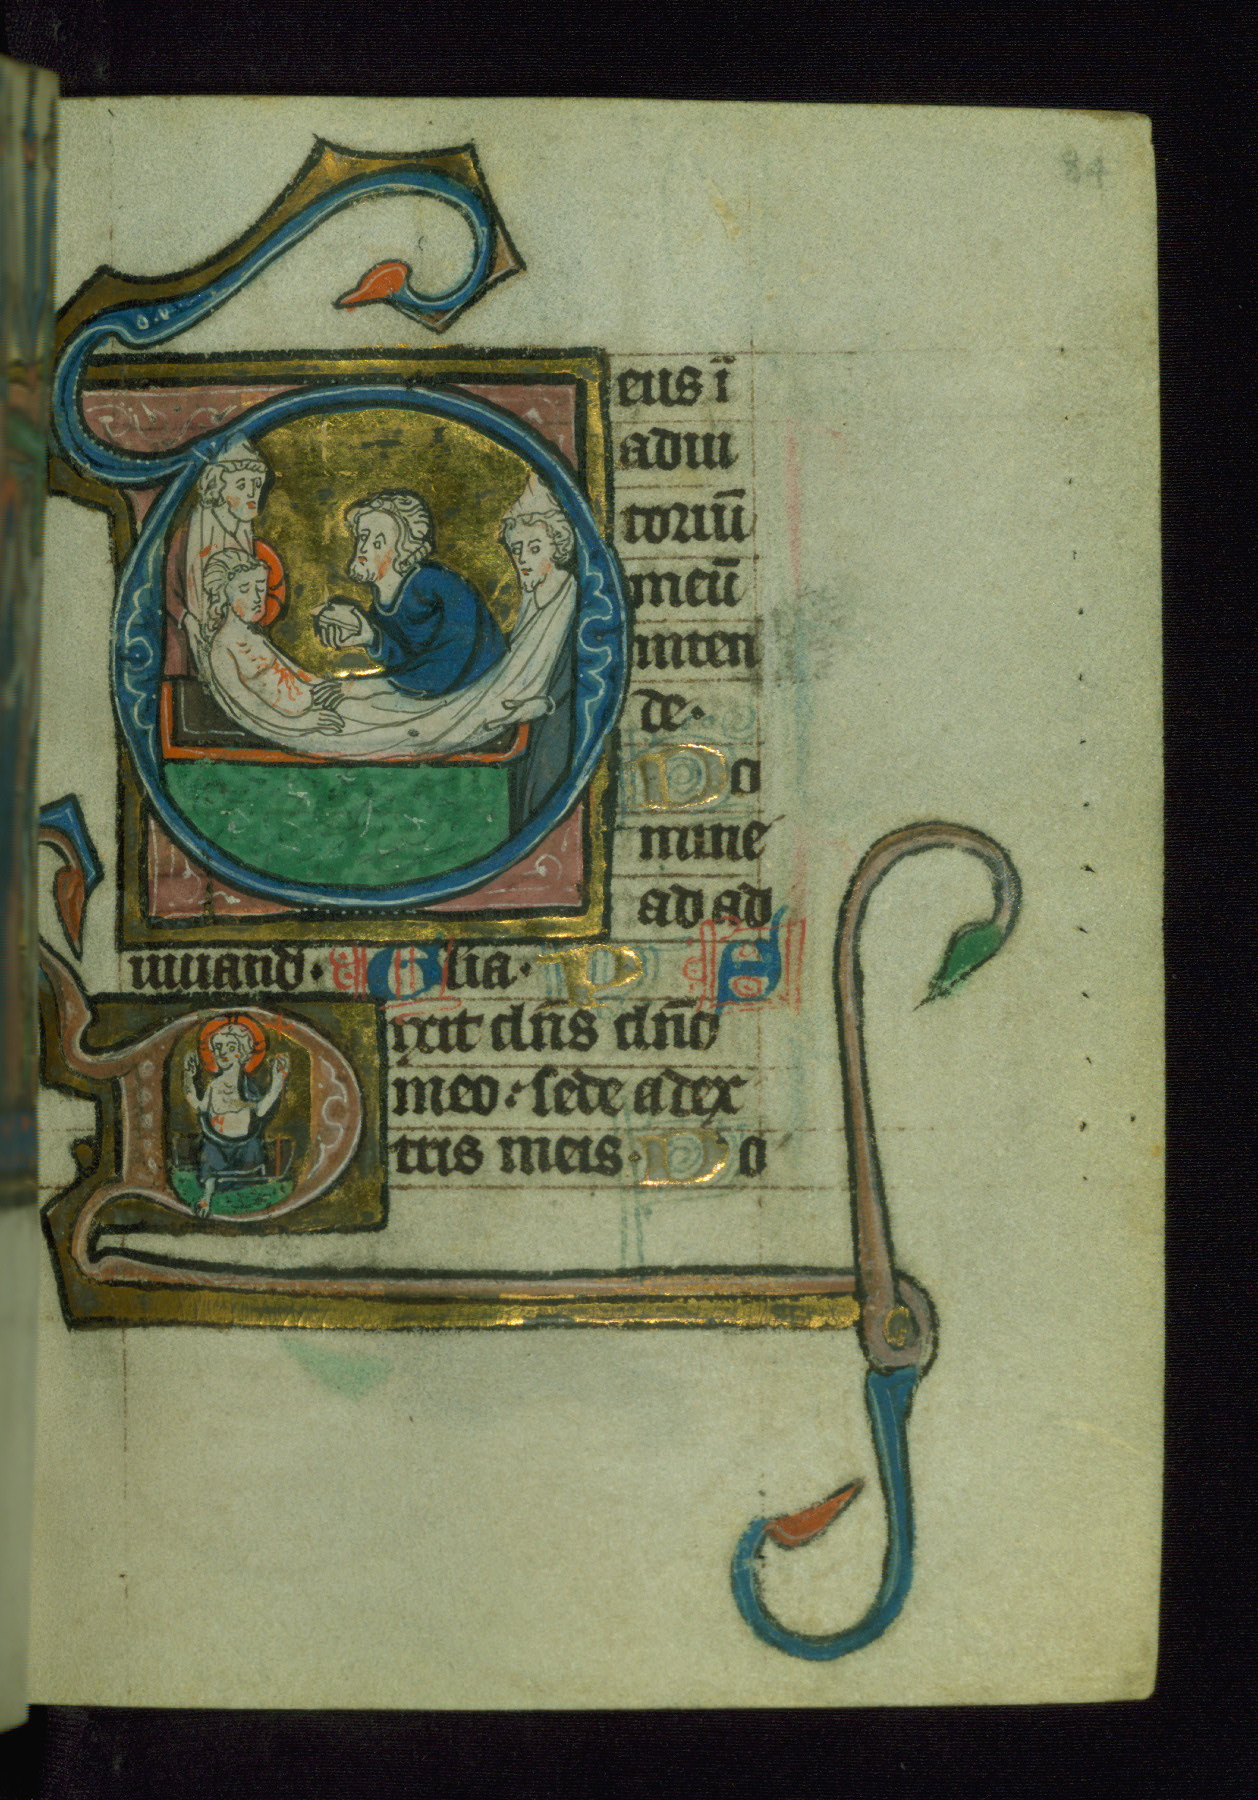 84
Deus ī
adiu
toriū
meū
inten
de.
Do
mine
ad ad
iuuand. Glia. P S
Dixit dn̄s dn̄o
meo: sede a dex
tris meis. Do